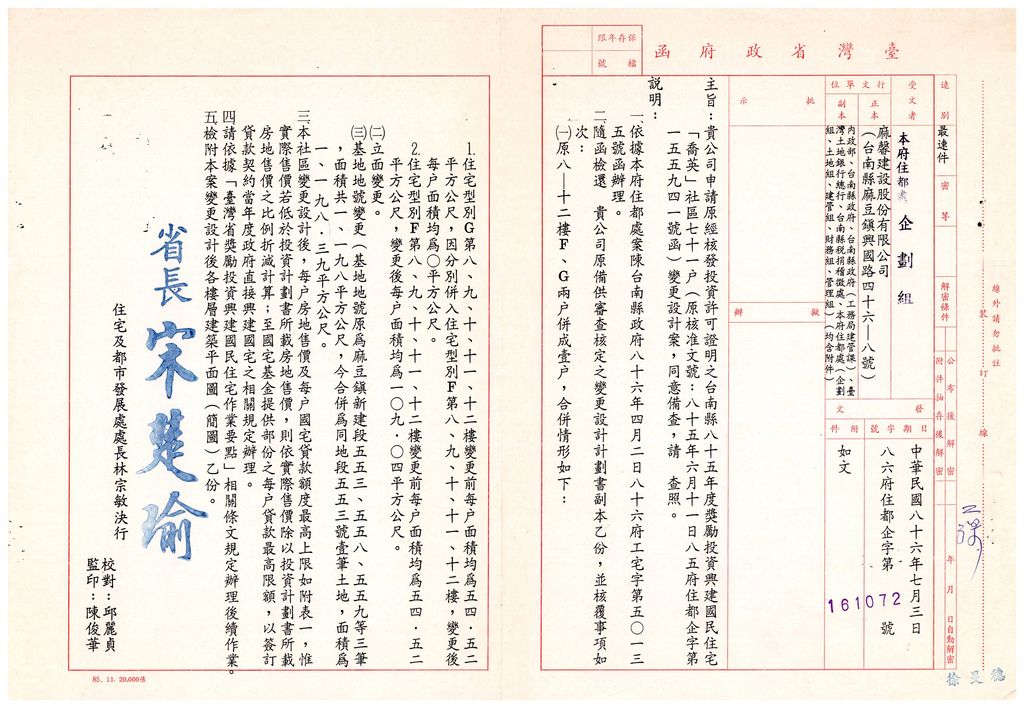 臺灣省政府函
保存年限
檔號
速別 最速件
密等
解密條件
公布後解密
附件抽存後解密
年 月 日自動解密
裝 訂 線
線外請勿批註
受文者 本府住都處企劃組
行文單位
正本 麻馨建設股份有限公司
(台南縣麻豆鎮興國路四十六–八號)
副本 內政部、台南縣政府、台南縣政府(工務局建管課)、臺
灣土地銀行總行、台南縣稅捐稽徵處、本府住都處(企劃
組、土地組、建管組、財務組、管理組)(均含附件)
發文
日期 中華民國八十六年七月三日
字號 八六府住都企字第161072號
附件 如文
批示
擬辦
主旨:貴公司申請原經核發投資許可證明之台南縣八十五年度獎勵投資興建國民住宅
「喬英」社區七十一户(原核准文號:八十五年六月十一日八五府住都企字第
一五五九四一號函)變更設計案,同意備查,請 查照。
說明:
一、依據本府住都處案陳台南縣政府八十六年四月二日八十六府工宅字第五〇一三
五號函辦理。
二、隨函檢還 貴公司原備供審查核定之變更設計計劃書副本乙份,並核覆事項如
次:
㈠原八–十二樓F、G兩户併成壹户,合併情形如下:
1.住宅型別G第八、九、十、十一、十二樓變更前每户面積均爲五四.五二
平方公尺,因分別併入住宅型別F第八、九、十、十一、十二樓,變更後
每户面積均爲〇平方公尺。
2.住宅型別F第八、九、十、十一、十二樓變更前每户面積均爲五四.五二
平方公尺,變更後每户面積均爲一〇九.〇四平方公尺。
㈡立面變更。
㈢基地地號變更(基地地號原爲麻豆鎮新建段五五三、五五八、五五九等三筆
,面積共一、一九八平方公尺,今合併爲同地段五五三號壹筆土地,面積爲
一、一九八.三九平方公尺。
三、本社區變更設計後,每户房地售價及每户國宅貸款額度最高上限如附表一,惟
實際售價若低於投資計劃書所載房地售價,則依實際售價除以投資計劃書所載
房地售價之比例折減計算;至國宅基金提供部份之每户貸款最高限額,以簽訂
貸款契約當年度政府直接興建國宅之相關規定辦理。
四、請依據「臺灣省獎勵投資興建國民住宅作業要點」相關條文規定辦理後續作業。
五、檢附本案變更設計後各樓層建築平面圖(簡圖)乙份。
省長 宋楚瑜
住宅及都市發展處處長林宗敏決行
校對:邱麗貞
監印:陳俊華
85. 11. 20,000張